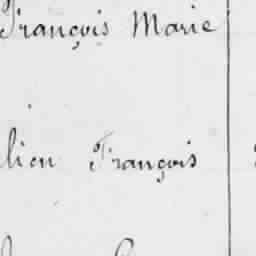 François Marie
lien François